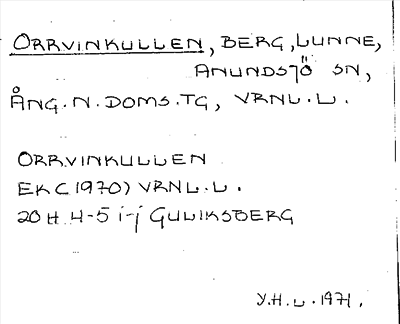 ORRVINKULLEN, BERG, LUNNE,
ANUNDSJÖ SN,
ÅNG. N. DOMS. TG, VRNL. L.
ORRVINKULLEN
EK (1970) VRNL. L.
20 H 4-5 i-j GULIKSBERG
Y.H. L. 1971.